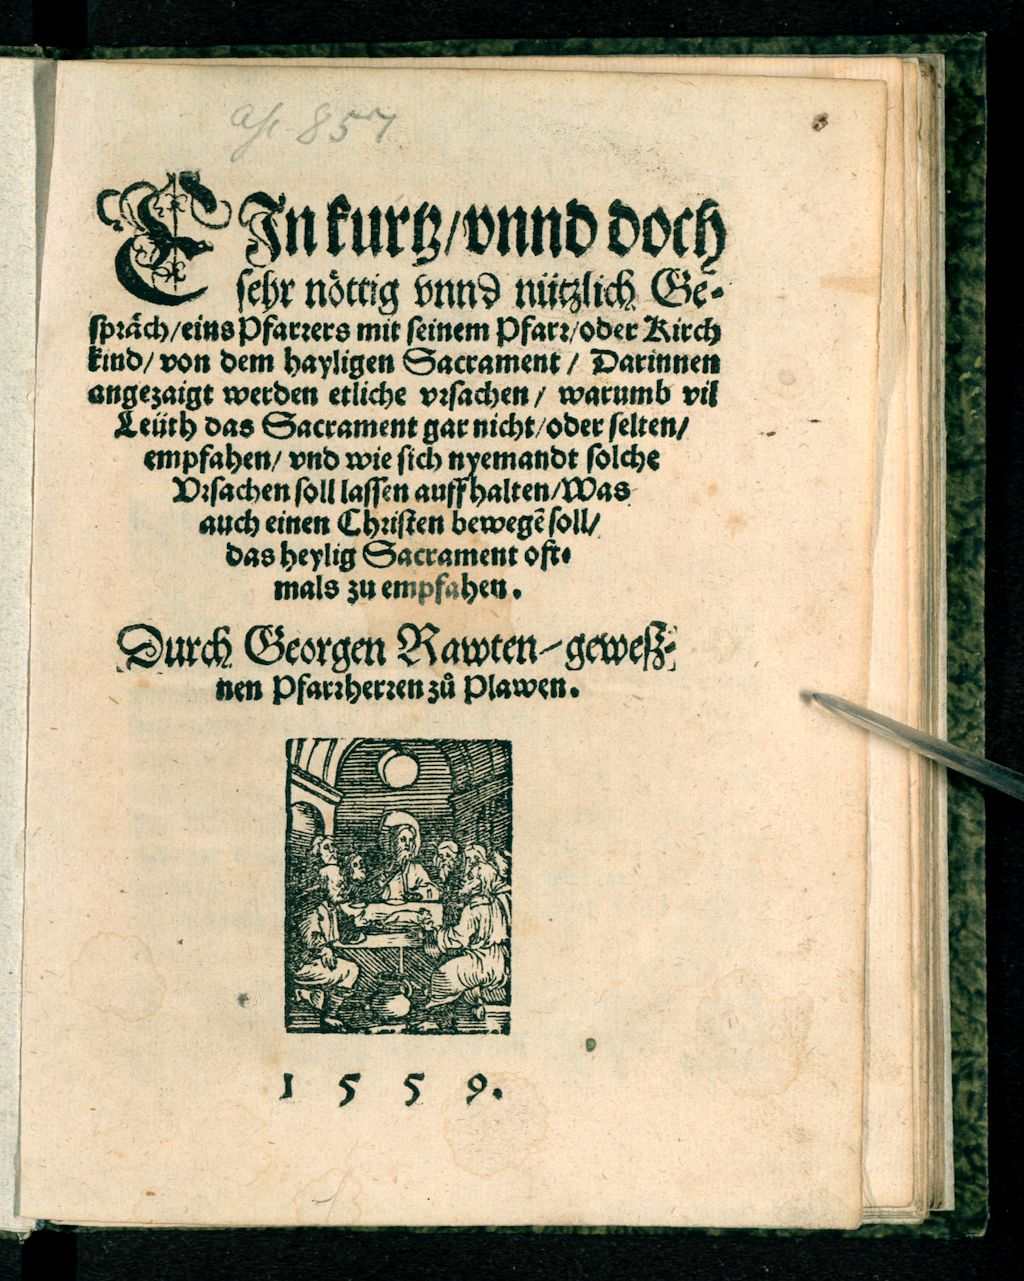 857
EIn kurtz/vnnd doch
sehr nöttig vnnd nützlich Ge-
spräch/eins Pfarrers mit seinem Pfarr/oder Kirch
kind/von dem hayligen Sacrament/ Darinnen
angezaigt werden etliche vrsachen/ warumb vil
Leüth das Sacrament gar nicht/oder selten/
empfahen/ vnd wie sich nyemandt solche
Vrsachen soll lassen auffhalten/Was
auch einen Christen bewegẽ soll/
das heylig Sacrament oft-
mals zu empfahen.
Durch Georgen Rawten/geweß-
nen Pfarrherren zů Plawen.
1559.